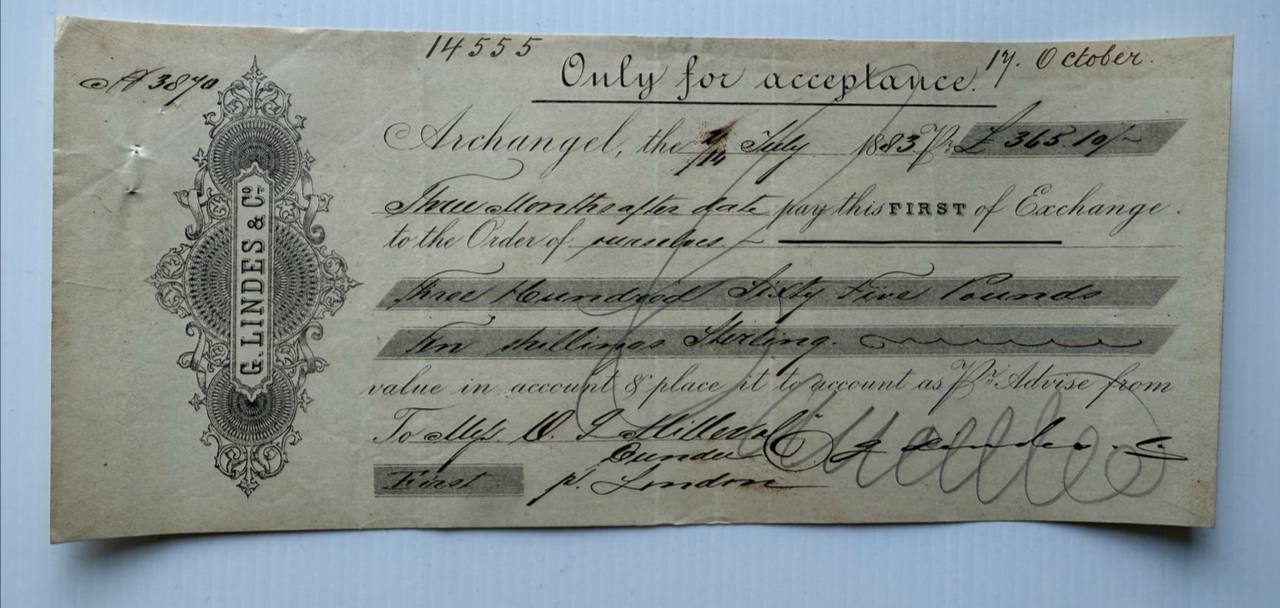 14555
17. October.
№ 3870
Only for acceptance.
G. LINDES & Co.
Archangel, the 2/14 July 1883 Pr £ 365.10/-
Three Months after date pay this FIRST of Exchange.
to the Order of ourselves
Three Hundred Sixty Five Pounds
Ten shillings Sterling.
value in account & place it to account as Pr Advise from
To Mss. O. G. Miller
Dundee G. Lindes
First p. London